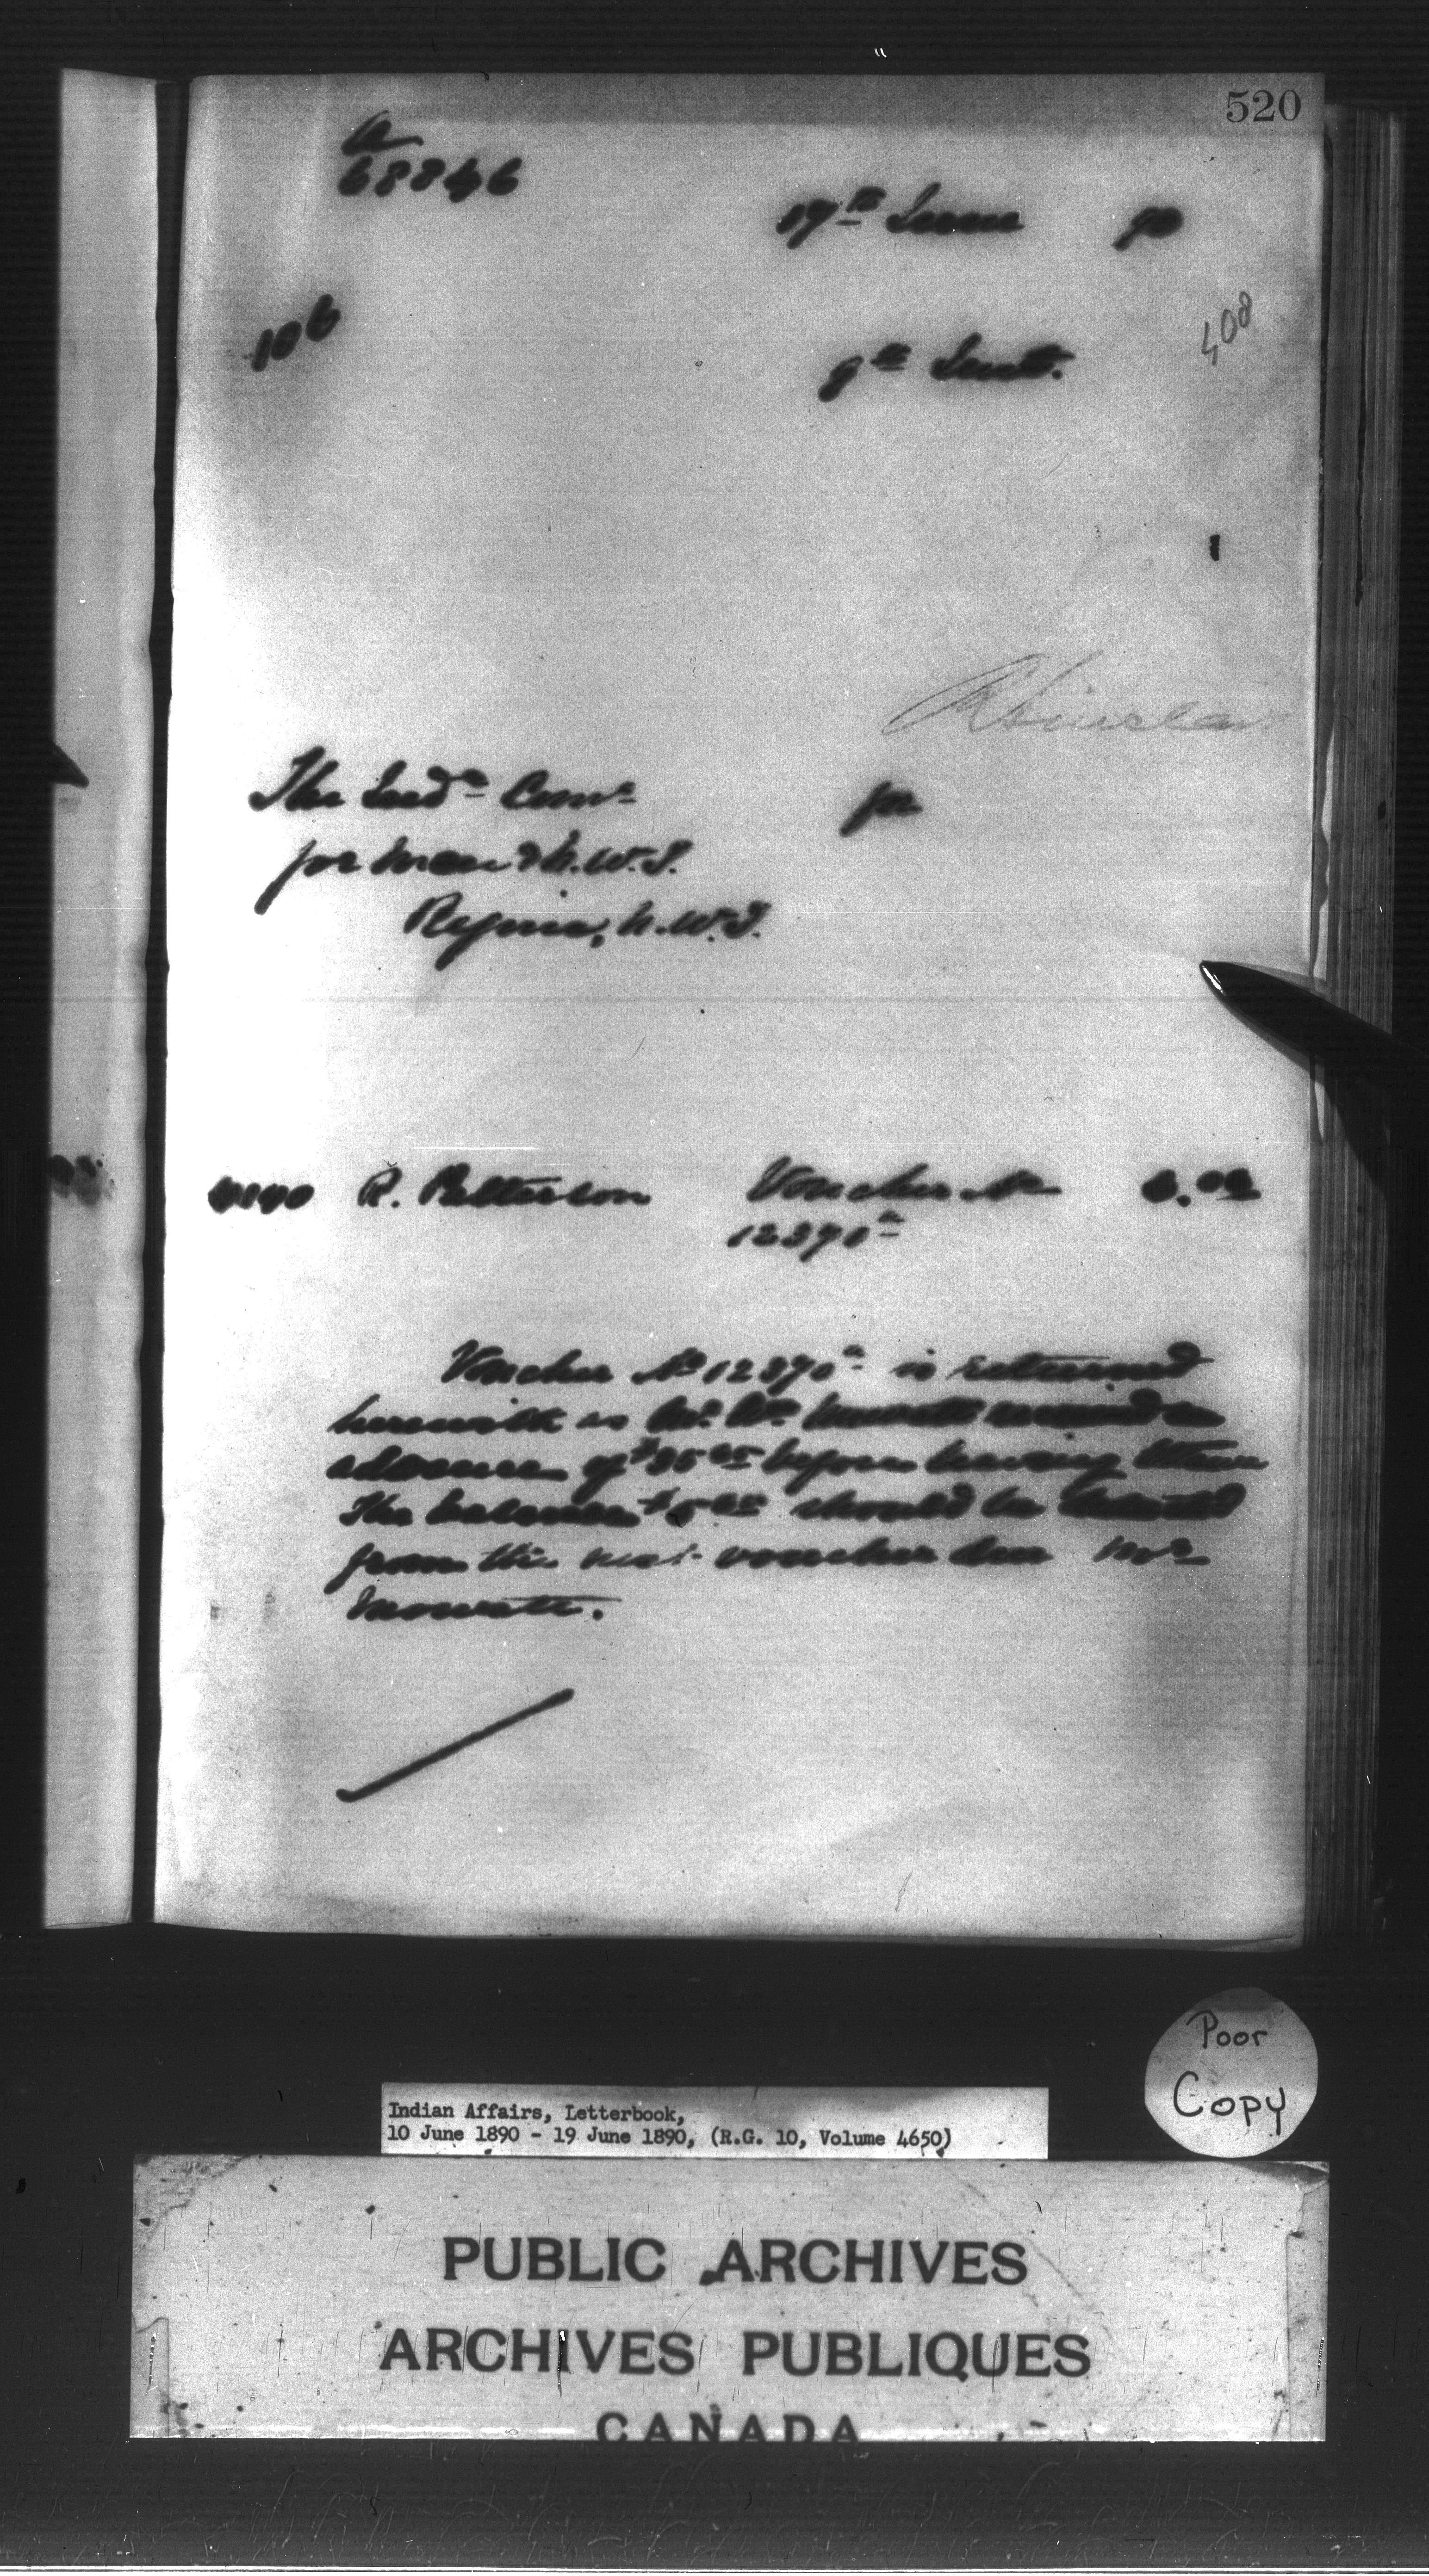 520
a
68846
19th June 90
106
408
9th Inst.
R Sinclair
The Indn Comr
for
for Man & N.W.T.
Regina, N.W.T.
R. Patterson Voucher No
12370a
Voucher No 12370a is returned
herewith as Mr. Wm
advance of $35 before leaving
the balance $ should be
from the next voucher due Mr
Mowatt.
Poor
Copy
Indian Affairs, Letterbook,
10 June 1890 - 19 June 1890, (R.G. 10, Volume 4650)
PUBLIC ARCHIVES
ARCHIVES PUBLIQUES
CANADA